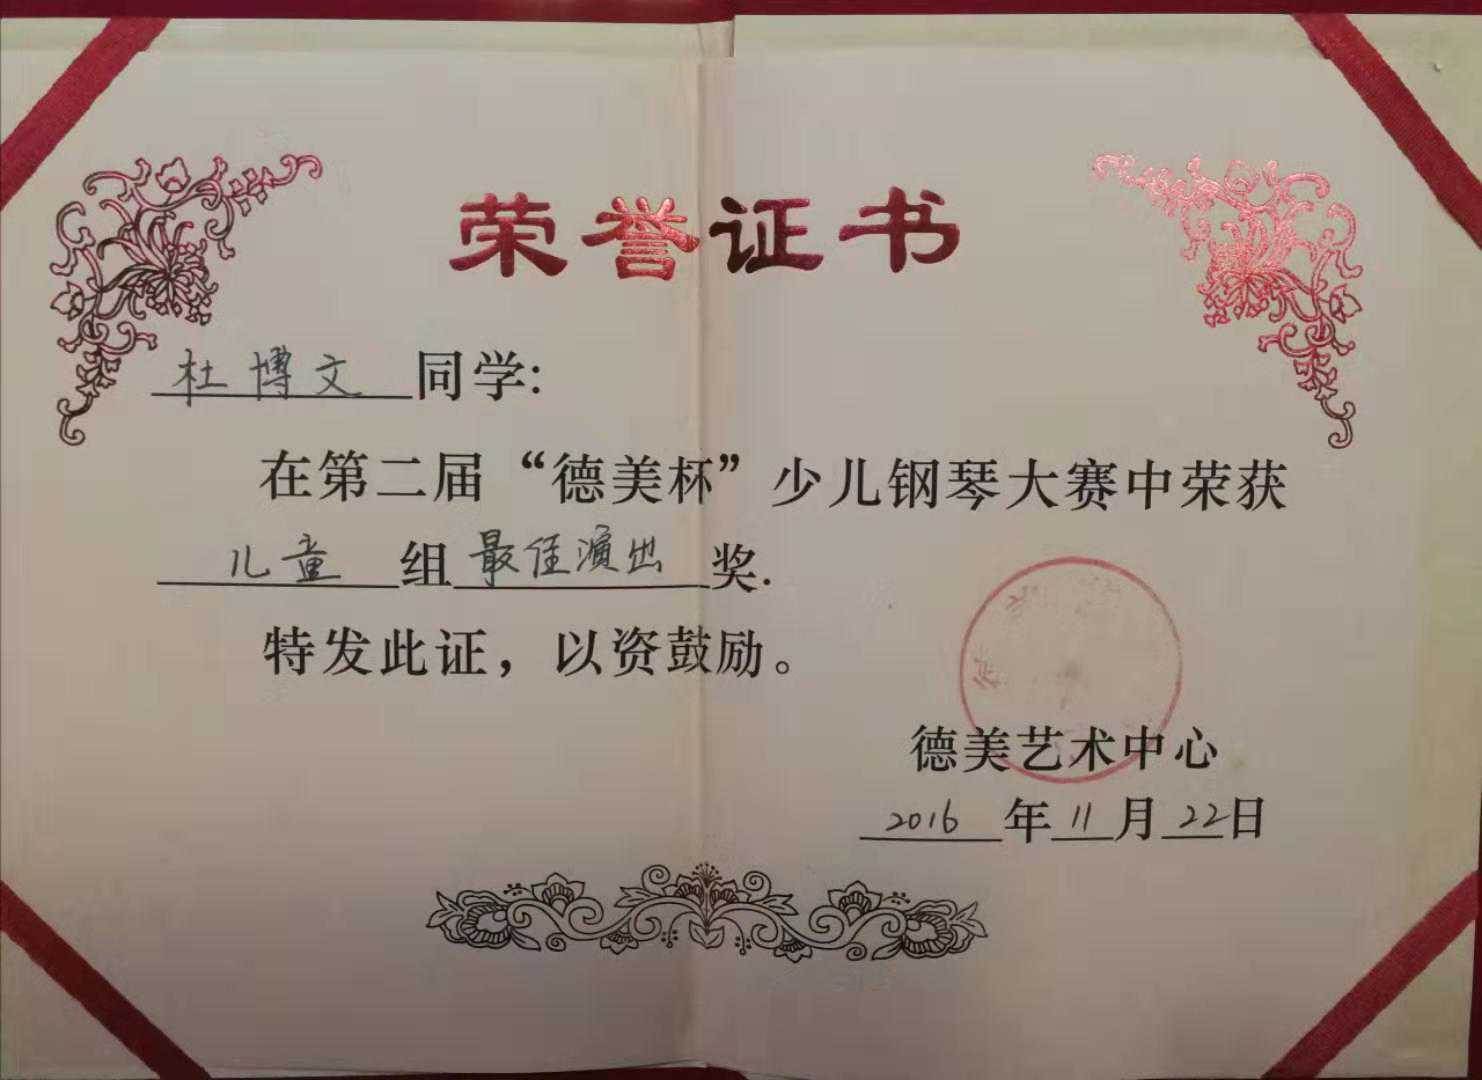 荣誉证书
杜博文同学:
在第二届“德美杯”少儿钢琴大赛中荣获
儿童组最佳演出奖.
特发此证，以资鼓励。
德美艺术中心
2016年11月22日